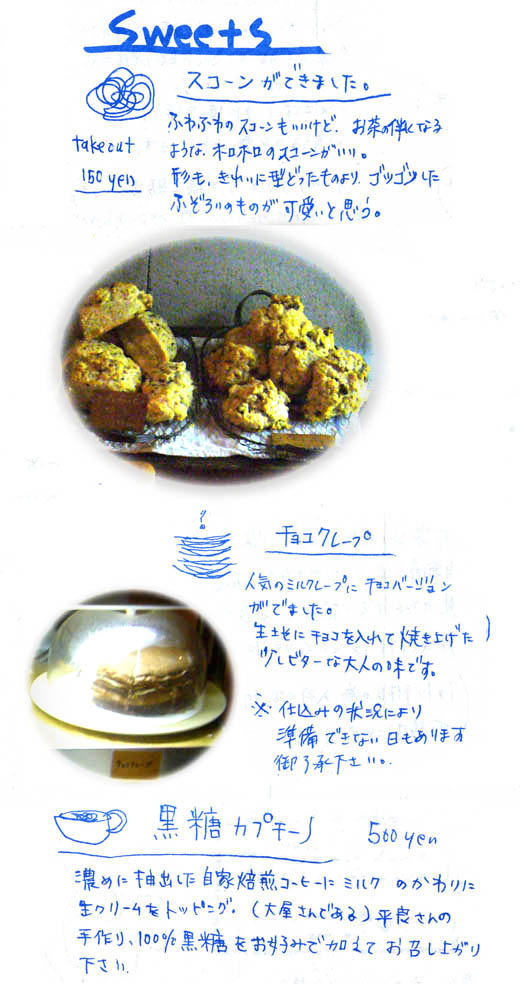 Sweets
スコーンができました。
takeout
150 yen
ふわふわのスコーンもいいけど、お茶の伴になる
ような、ホロホロのスコーンがいい。
形も、きれいに型どったものより、ゴツゴツした
ふぞろいのものが可愛いと思う。
?
チョコクレープ
人気のミルクレープにチョコバージョン
がでました。
生地にチョコを入れて焼き上げた
少しビターな大人の味です。
※ 仕込みの状況により
準備できない日もあります
御了承下さい。
黒糖カプチーノ 500 yen
濃めに抽出した自家焙煎コーヒーにミルクのかわりに
生クリームをトッピング。(大屋さんである)平良さんの
手作り、100%黒糖をお好みで加えてお召し上がり
下さい。